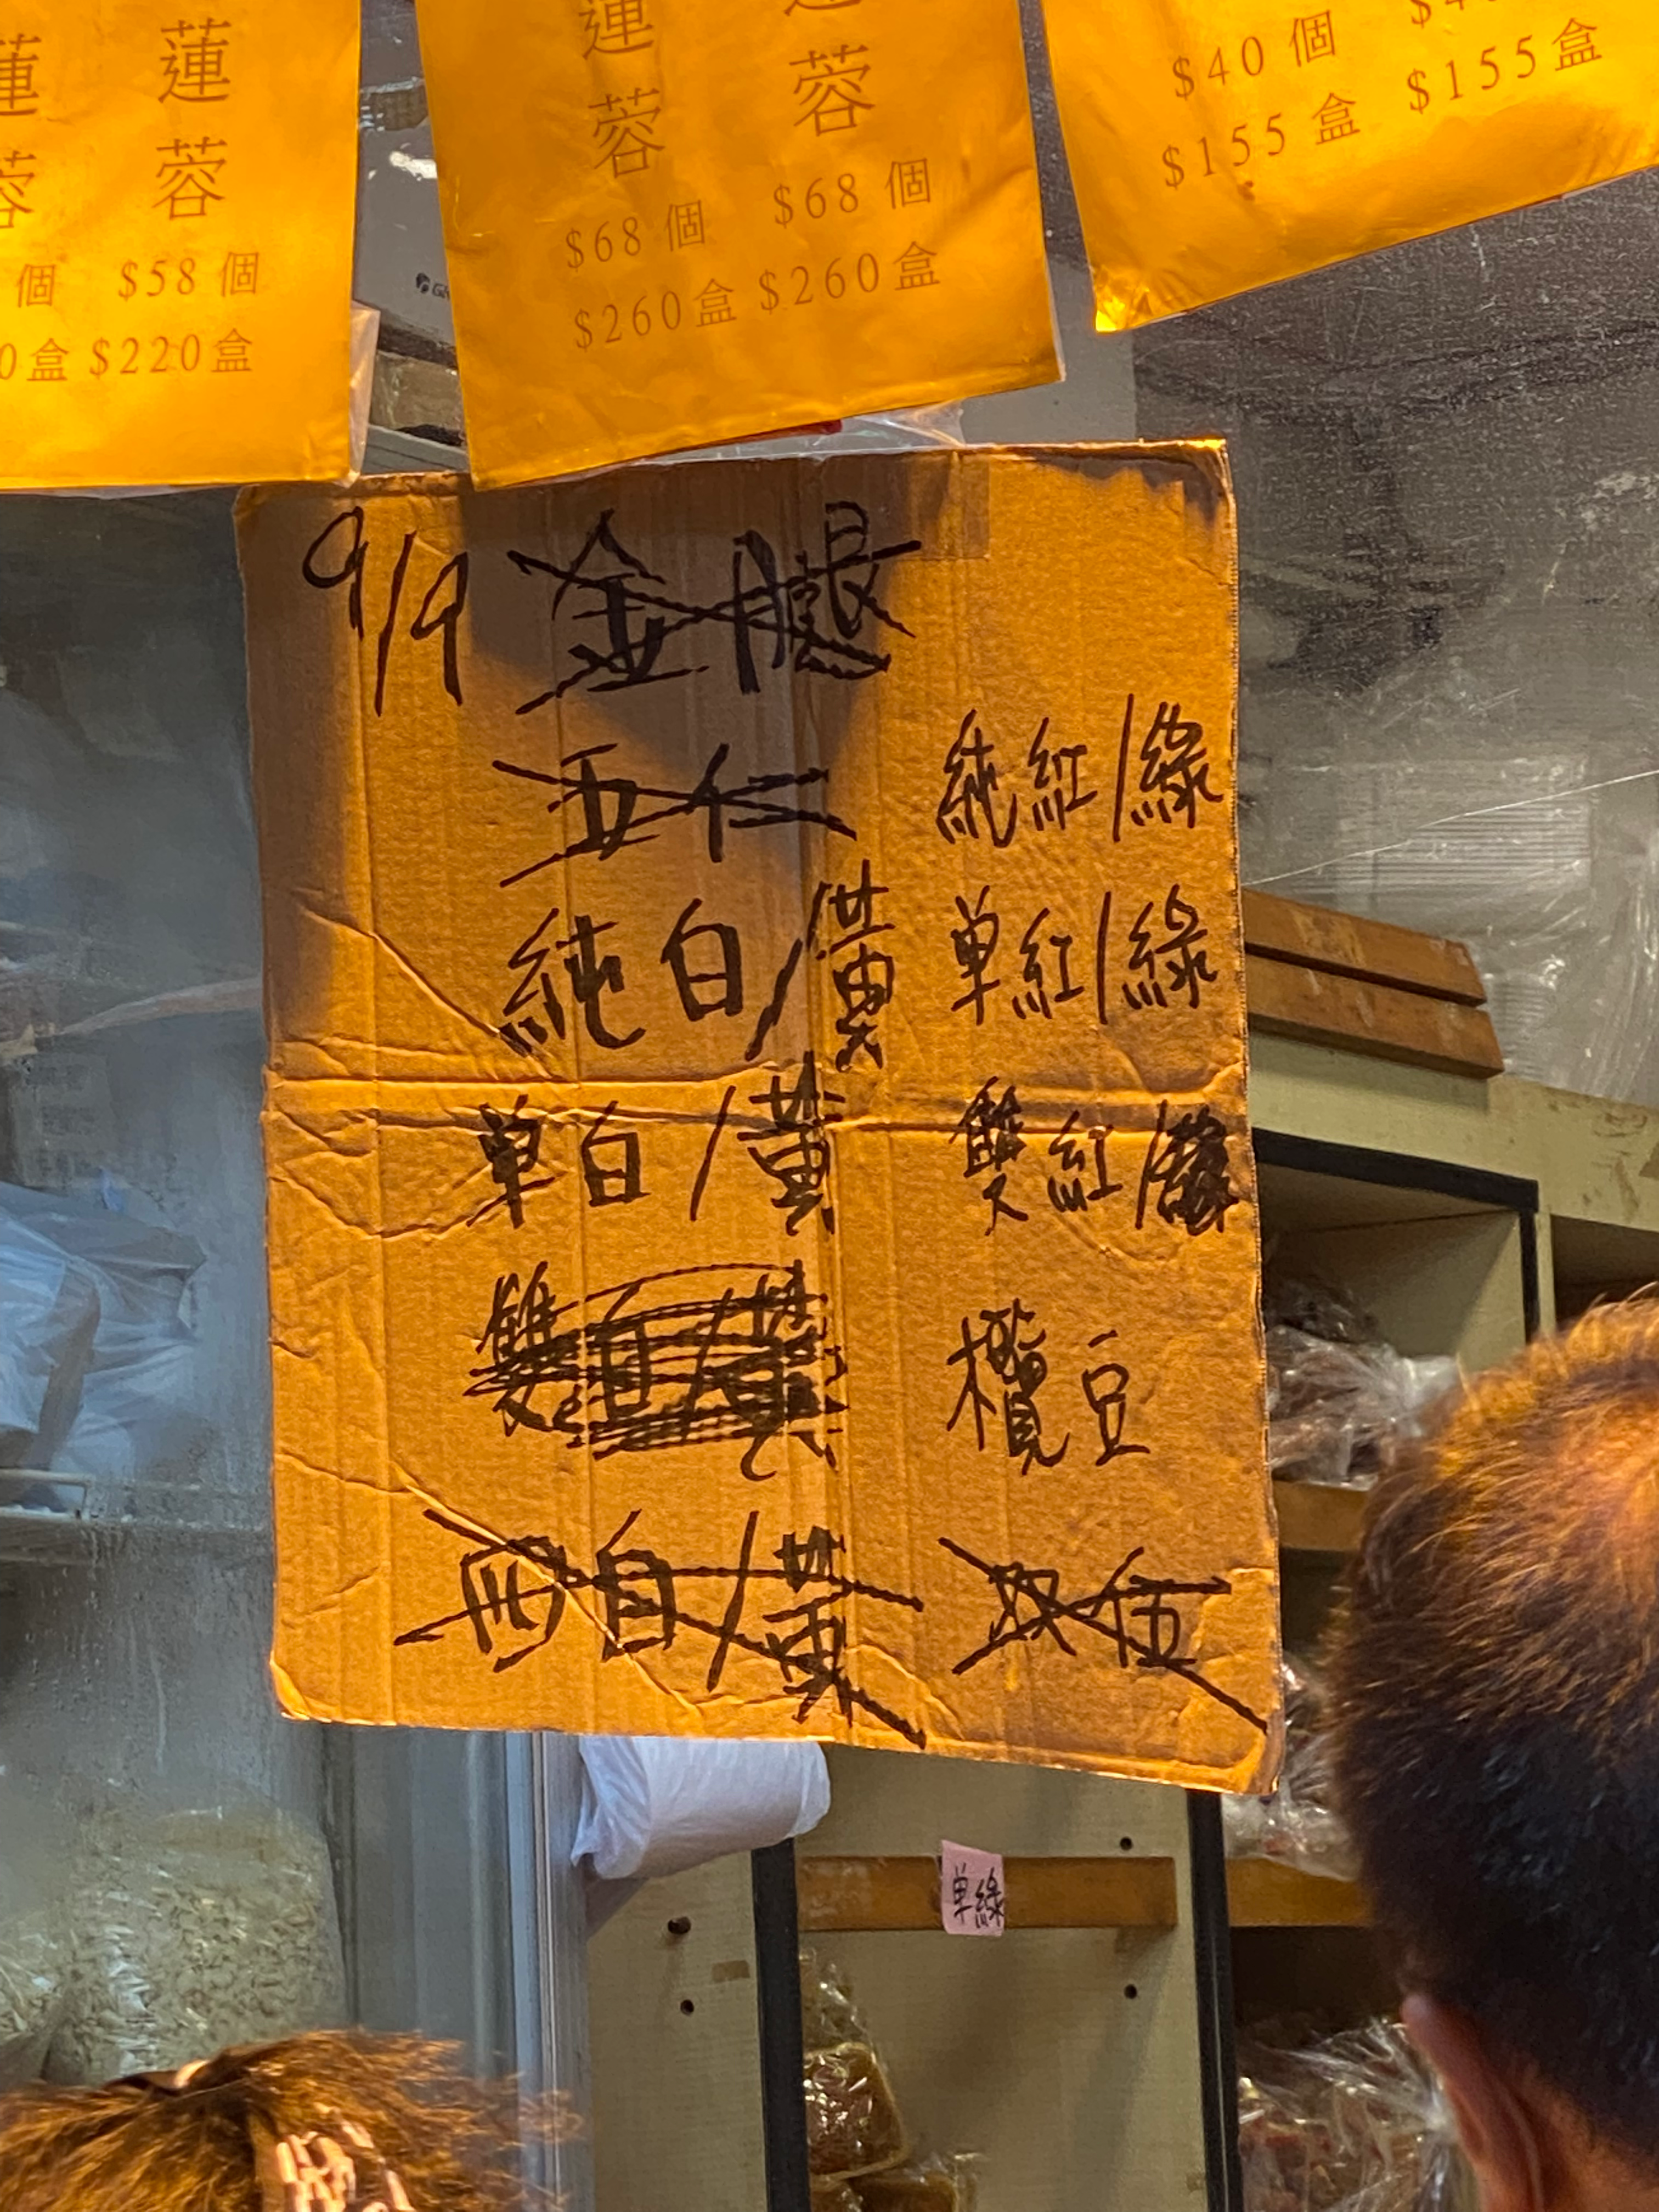 蓮蓉
蓉
個 $58個
0盒 $220盒
蓮蓉 蓉
$68個 $68個
$260盒 $260盒
$40個
$155盒 $155盒
9/9 金腿
五仁
純白/黃
单白/黃
雙白/黃
四白/黃
純紅/綠
单紅/綠
雙紅/
欖豆
伍
单綠